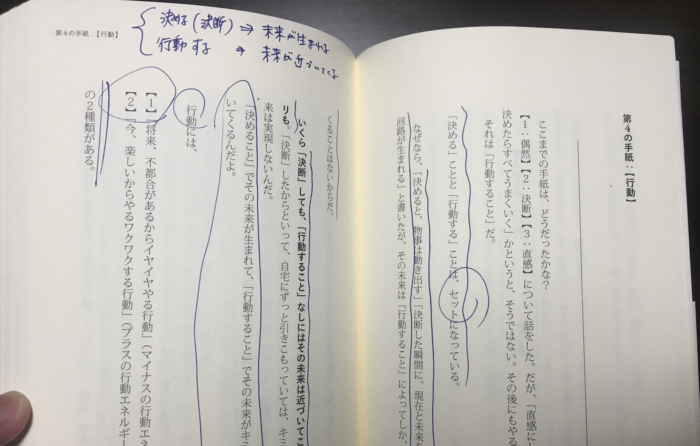 第4の手紙:【行動】
ここまでの手紙は、どうだったかな？
【1:偶然】【2:決断】【3:直感】について話をした。だが、「直感に
決めたらすべてうまくいく」かというと、そうではない。その後にもやる
それは「行動すること」だ。
「決める」ことと「行動する」ことは、セットになっている。
なぜなら、「決めると、物事は動き出す」「決断した瞬間に、現在と未来
回路が生まれる」と書いたが、その未来は「行動すること」によってしか、
第4の手紙:【行動】
決める(決断)⇒未来が生まれる
行動する⇒未来が近づいてくる
くることはないからだ。
いくら「決断」しても、「行動すること」なしにはその未来は近づいてこ
リも。「決断」したからといって、自宅にずっと引きこもっていては、キミ
来は実現しないんだ。
「決めること」でその未来が生まれて、「行動すること」でその未来がキ
いてくるんだよ。
行動には、
【1】「将来、不都合があるからイヤイヤやる行動」(マイナスの行動エネ
【2】「今、楽しいからやるワクワクする行動」(プラスの行動エネルギー
の2種類がある。